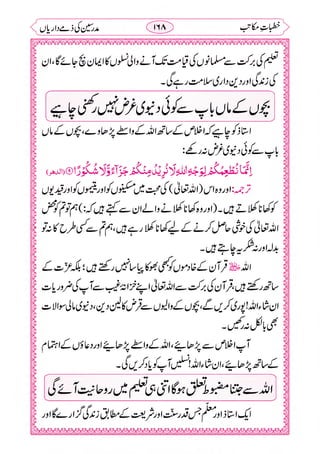 خطباتِ مکاتب ۱۶۸ مدرسین کی ذمے داریاں
تعلیم کی برکت سے مسلمانوں کی قیامت تک آنے والی نسلوں کا ایمان بچ جائے گا، ان
کی زندگی اور دین داری سلامت رہے گی۔
بچوں کے ماں باپ سے کوئی دنیوی غرض نہیں رکھنی چاہیے
استاذ کو چاہیے کہ اخلاص کے ساتھ اللہ کے واسطے پڑھاوے، بچوں کے ماں
باپ سے کوئی دنیوی غرض نہ رکھے:
اِنَّمَا نُطْعِمُكُمْ لِوَجْهِ اللّٰهِ لَا نُرِيْدُ مِنْكُمْ جَزَآءً وَّلَا شُكُوْرًا ۹ (الدھر)
ترجمہ: اور وہ اس (اللہ تعالیٰ) کی محبت میں مسکینوں کو اور یتیموں کو اور قیدیوں
کو کھانا کھلاتے ہیں۔ (اور وہ کھانا کھلانے والے ان سے کہتے ہیں کہ:) ہم تو تم کو محض
اللہ تعالیٰ کی خوشی حاصل کرنے کے لیے کھانا کھلا رہے ہیں، ہم تم سے کسی طرح کا نہ تو
بدلہ اور نہ شکریہ چاہتے ہیں۔
اللہ قرآن کے خادموں کو کبھی بھوکا پیاسا نہیں رکھتے ہیں؛ بلکہ عزت کے
ساتھ رکھتے ہیں، قرآن کی برکت سے اللہ تعالیٰ اپنے خزانۂ غیب سے آپ کی ضروریات
ان شاء اللہ! پوری کریں گے، بچوں کے والیوں سے قرض کا لین دین، دنیوی، مالی سوالات
کبھی بالکل نہ رکھیں۔
آپ اخلاص سے پڑھائیے، اللہ کے واسطے پڑھائیے اور دعاؤں کے اہتمام
کے ساتھ پڑھائیے، ان شاء اللہ! نسلیں آپ کو یاد کریں گی۔
اللہ سے جتنا مضبوط تعلق ہوگا اتنی ہی تعلیم میں روحانیت آئے گی
ایک استاذ اور معلّم جس قدر سنّت اور شریعت کے مطابق زندگی گزارے گا اور